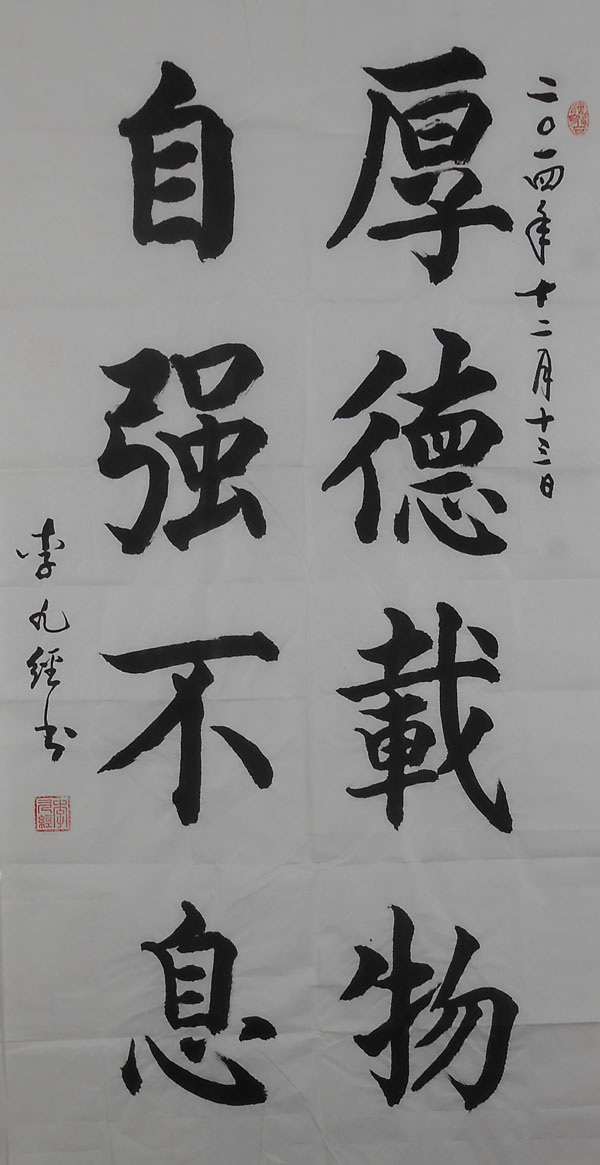 二〇一四年十二月十三日
厚德載物
自强不息
李九經书